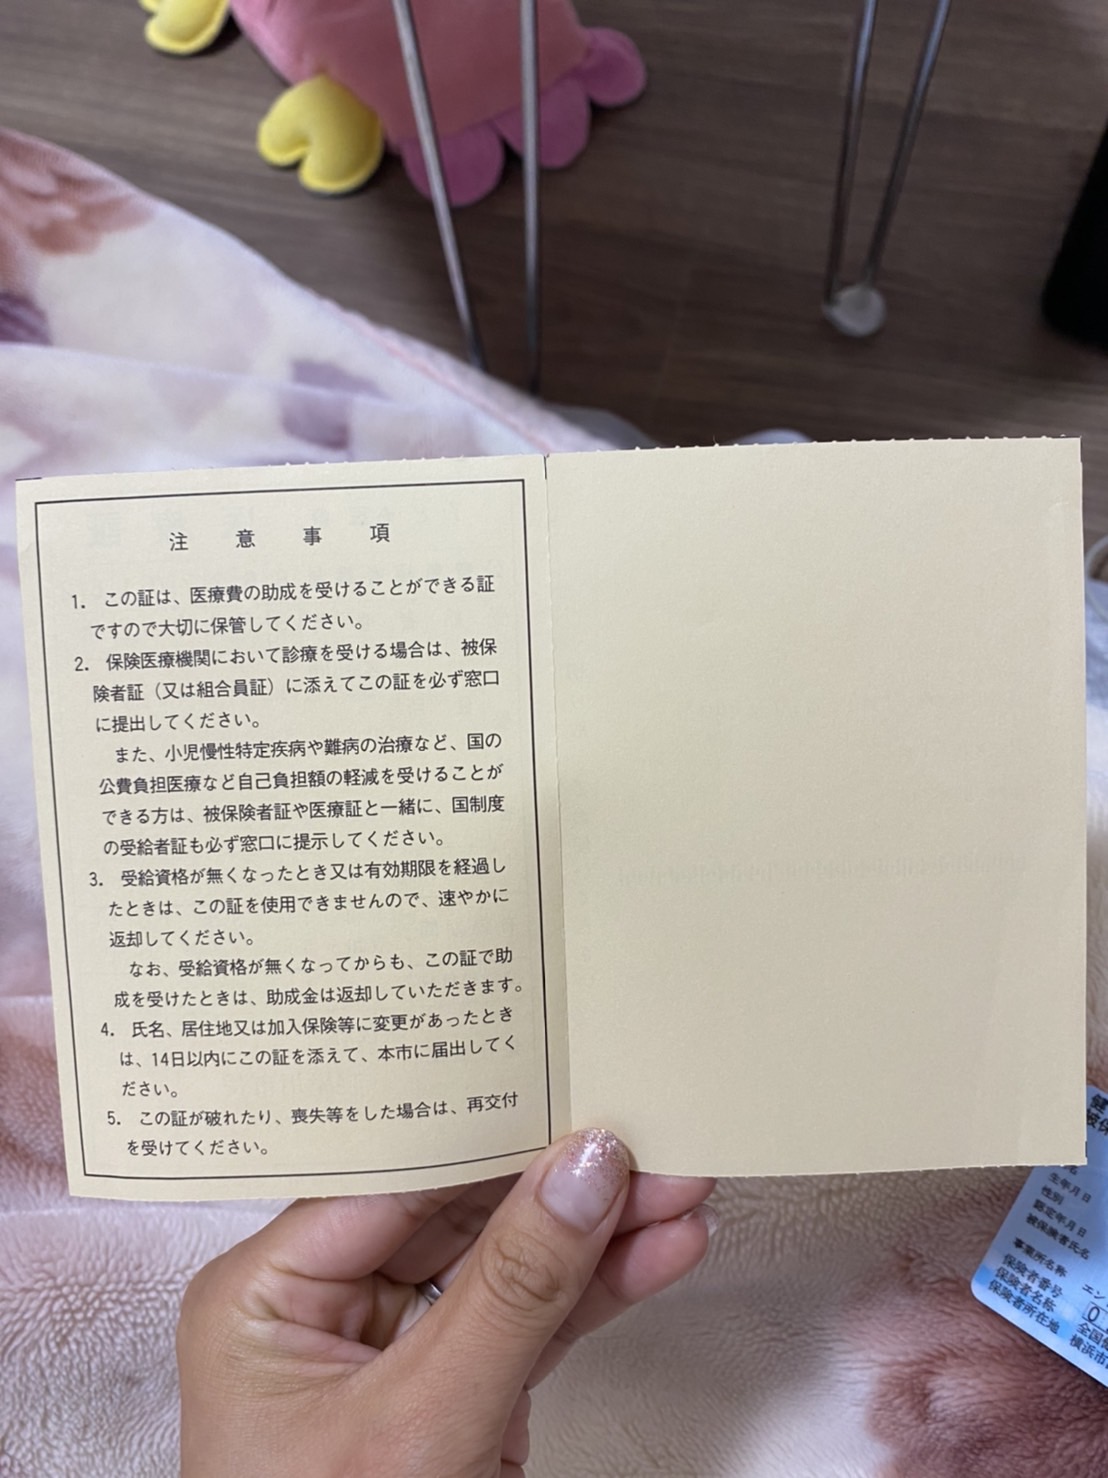 注意事項
1. この証は、医療費の助成を受けることができる証
ですので大切に保管してください。
2. 保険医療機関において診療を受ける場合は、被保
険者証（又は組合員証）に添えてこの証を必ず窓口
に提出してください。
また、小児慢性特定疾病や難病の治療など、国の
公費負担医療など自己負担額の軽減を受けることが
できる方は、被保険者証や医療証と一緒に、国制度
の受給者証も必ず窓口に提示してください。
3. 受給資格が無くなったとき又は有効期限を経過し
たときは、この証を使用できませんので、速やかに
返却してください。
なお、受給資格が無くなってからも、この証で助
成を受けたときは、助成金は返却していただきます。
4. 氏名、居住地又は加入保険等に変更があったとき
は、14日以内にこの証を添えて、本市に届出してく
ださい。
5. この証が破れたり、喪失等をした場合は、再交付
を受けてください。
健
被保
生年月日
性別
認定年月日
被保険者氏名
事業所名称 エン
保険者番号 0
保険者名称 全国健
保険者所在地 横浜市